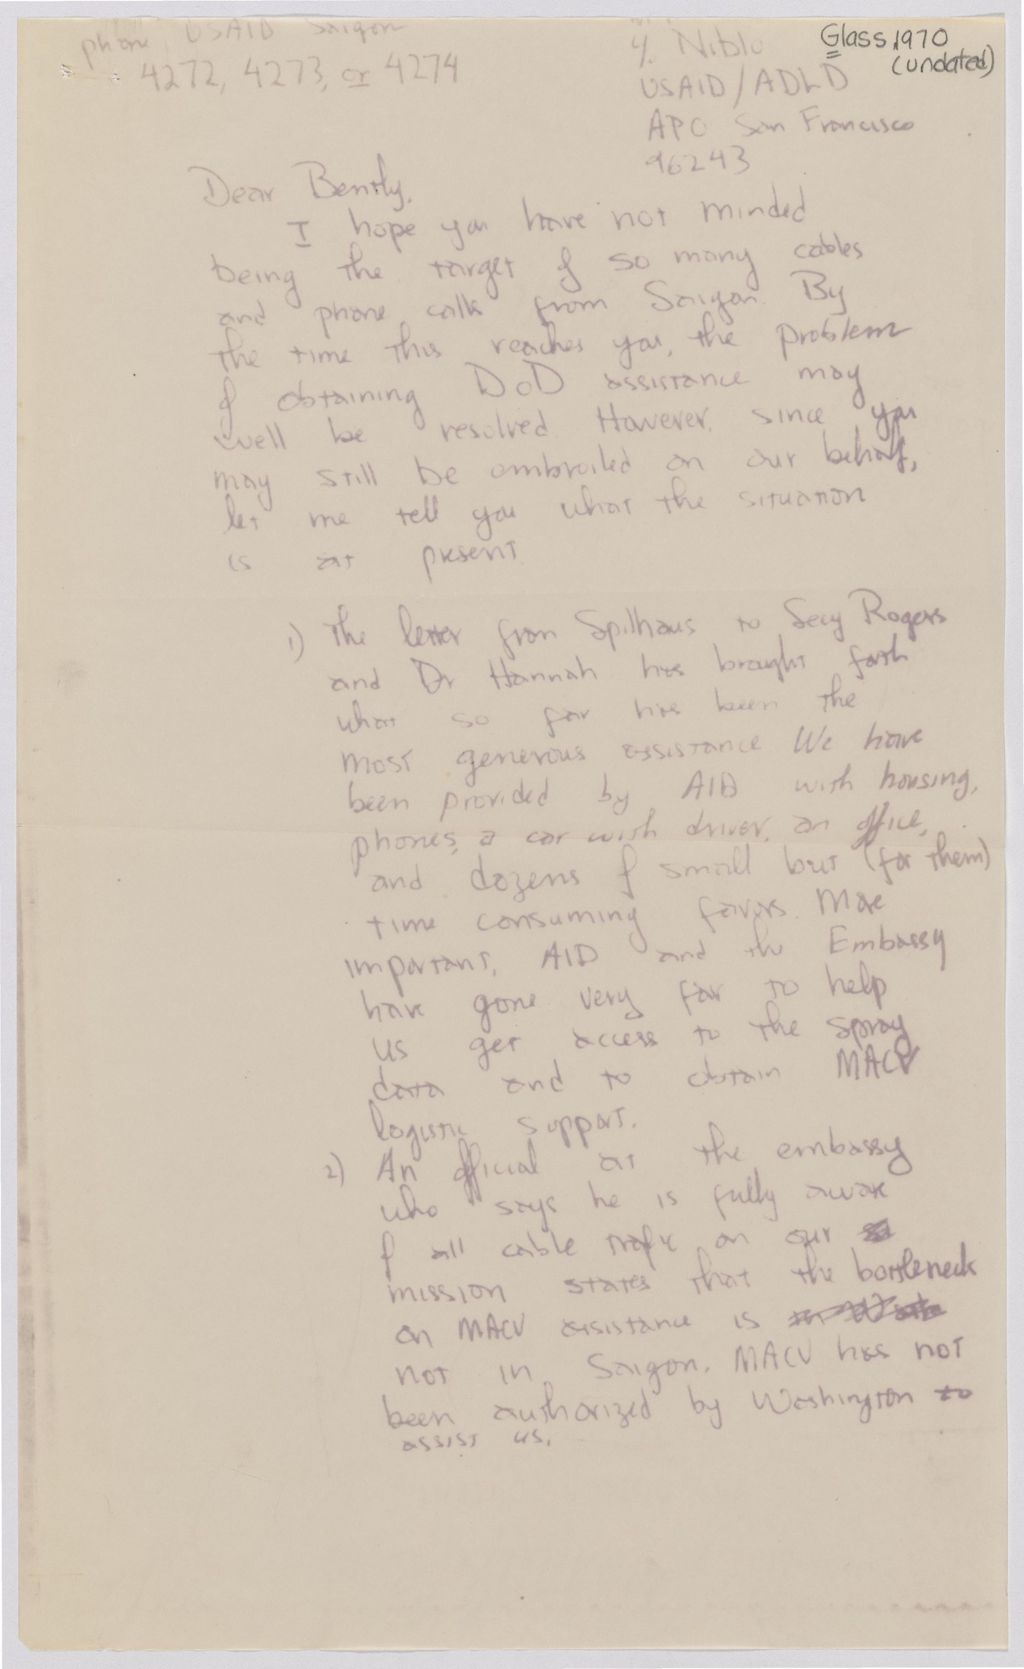 phone USAID Saigon
4272, 4273, or 4274
Y. Niblo
USAID/ADLD
APO San Francisco
96243
Glass, 1970
(undated)
Dear Bently,
I hope you have not minded
being the target of so many cables
and phone calls from Saigon. By
the time this reaches you, the problem
of obtaining DoD assistance may
well be resolved. However, since you
may still be embroiled on our behalf,
let me tell you what the situation
is at present
1) The letter from Spilhaus to Secy Rogers
and Dr Hannah has brought forth
what so far has been the
most generous assistance. We have
been provided by AID with housing,
phones, a car with driver, an office,
and dozens of small but (for them)
time consuming favors. More
important, AID and the Embassy
have gone very far to help
us get access to the spray
data and to obtain MACV
logistic support.
2) An official at the embassy
who says he is fully aware
of all cable trafic on our
mission states that the bottleneck
on MACV assistance is
not in Saigon. MACV has not
been authorized by Washington to
assist us.